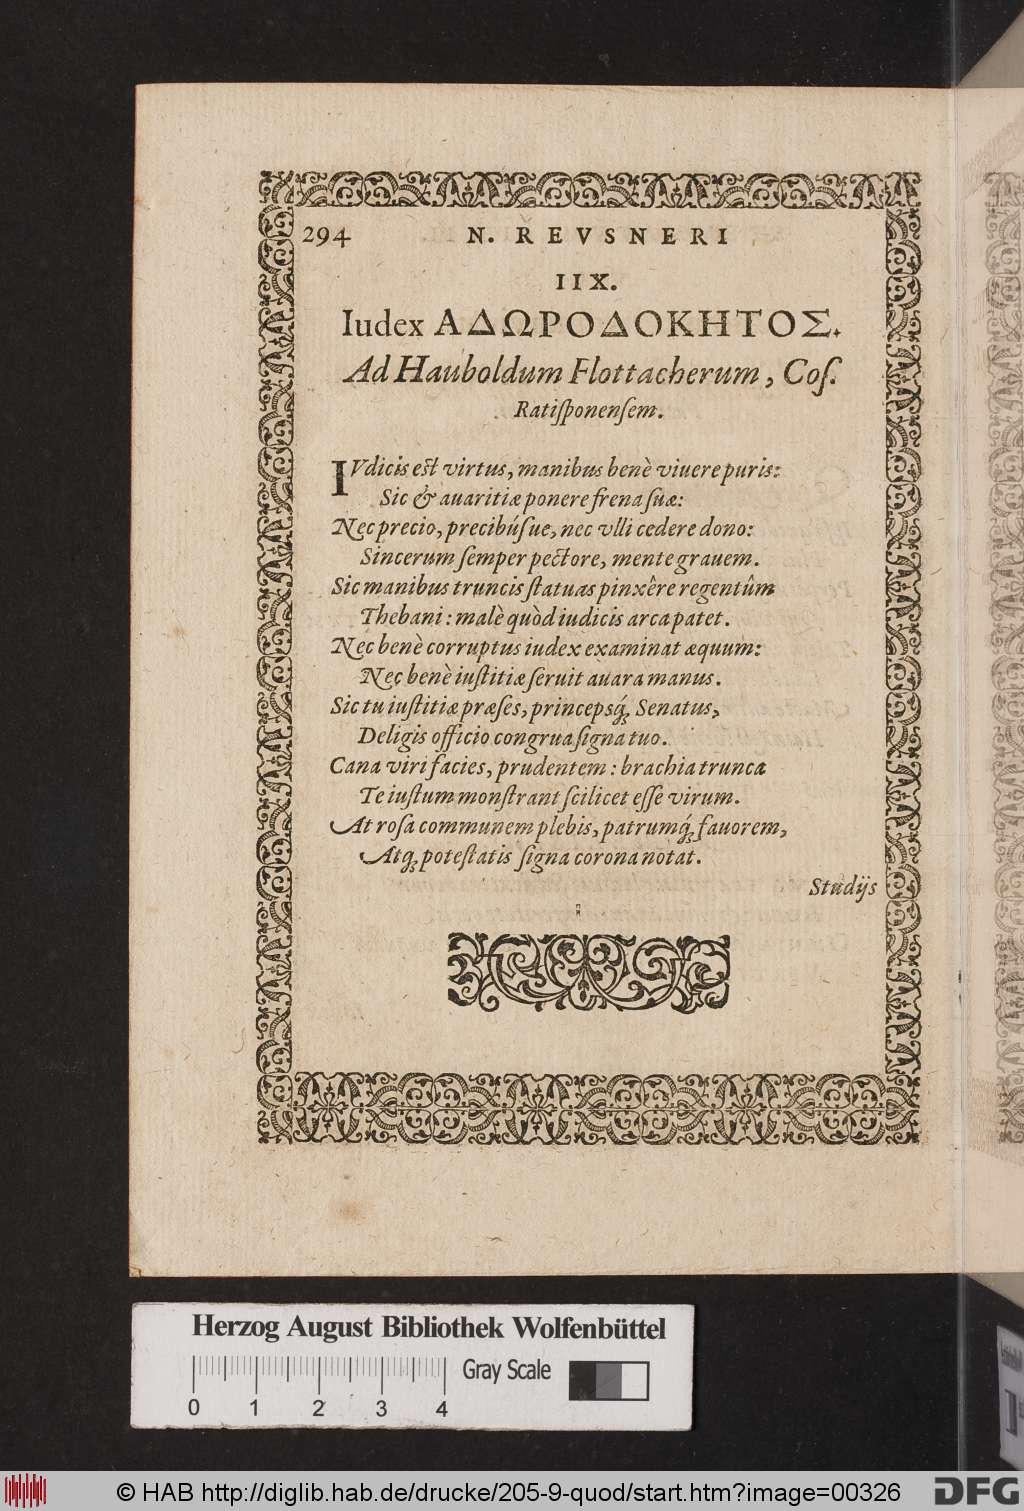 294 N. REVSNERI
IIX.
Iudex ΑΔΩΡΟΔΟΚΗΤΟΣ.
Ad Hauboldum Flottacherum, Coſ.
Ratiſponenſem.
IVdicis est virtus, manibus benè viuere puris:
Sic & auaritiæ ponere frena ſuæ:
Nec precio, precibúſue, nec vlli cedere dono:
Sincerum ſemper pectore, mente grauem.
Sic manibus truncis ſtatuas pinxêre regentûm
Thebani: malè quòd iudicis arca patet.
Nec benè corruptus iudex examinat æquum:
Nec benè iuſtitiæ ſeruit auara manus.
Sic tu iuſtitiæ præſes, princepsq́; Senatus,
Deligis officio congrua ſigna tuo.
Cana viri facies, prudentem: brachia trunca
Te iuſtum monſtrant ſcilicet eſſe virum.
At roſa communem plebis, patrumq́; fauorem,
Atq; poteſtatis ſigna corona notat.
Studijs
Herzog August Bibliothek Wolfenbüttel
Gray Scale
0 1 2 3 4
© HAB http://diglib.hab.de/drucke/205-9-quod/start.htm?image=00326
DFG